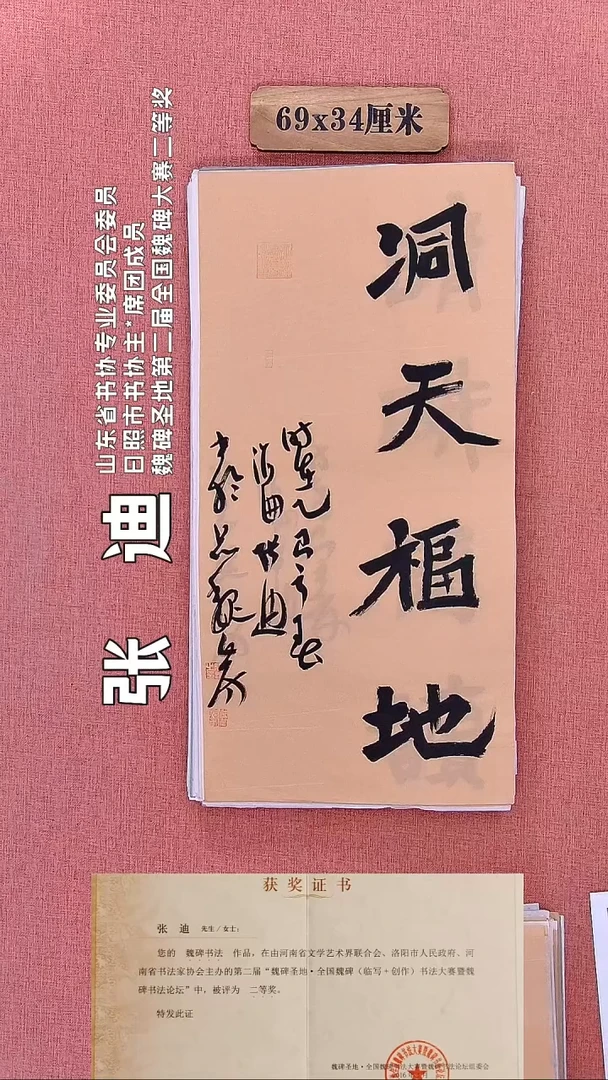 69x34厘米
洞天福地
时在乙巳之春
张迪
山东省书协专业委员会委员
日照市书协主*席团成员
魏碑圣地第二届全国魏碑大赛二等奖
张 迪
获奖证书
张 迪 先生/女士:
您的 魏碑书法 作品,在由河南省文学艺术界联合会、洛阳市人民政府、河
南省书法家协会主办的第二届“魏碑圣地·全国魏碑(临写+创作)书法大赛暨魏
碑书法论坛”中,被评为 二等奖。
特发此证
魏碑圣地·全国魏碑书法大赛暨魏碑书法论坛组委会